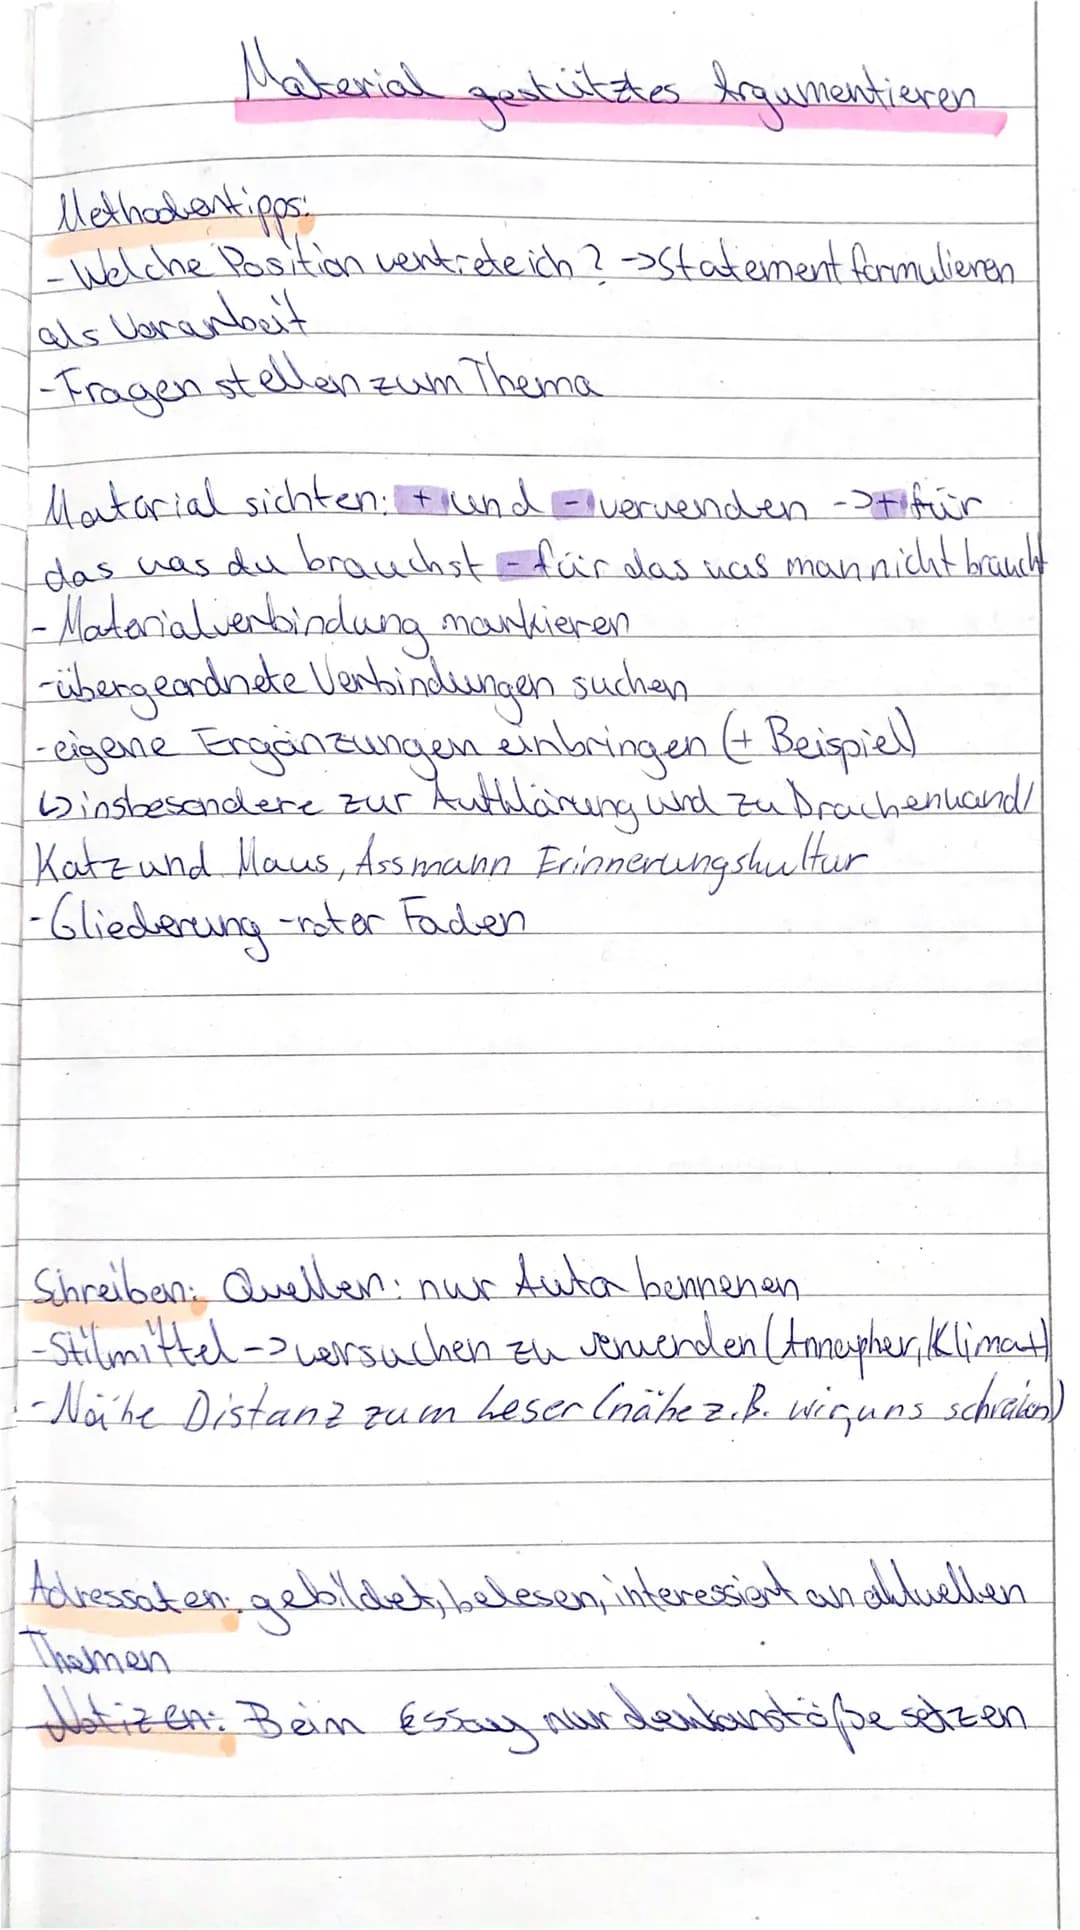 Material gestütztes Argumentieren
Methodentipps:
- Welche Position vertrete ich? -> Statement formulieren
als Vorarbeit
- Fragen stellen zum Thema
Material sichten: + und - verwenden -> + für
das was du brauchst - für das was man nicht braucht
- Materialverbindung markieren
- übergeordnete Verbindungen suchen
- eigene Ergänzungen einbringen (+ Beispiel)
↳ insbesondere zur Aufklärung und zu Drachenwand/
Katz und Maus, Assmann Erinnerungskultur
- Gliederung - roter Faden
Schreiben: Quellen: nur Autor bennenen
- Stilmittel -> versuchen zu verwenden (Annapher, Klimax)
- Nähe Distanz zum Leser (nähe z.B. wir, uns schreiben)
Adressaten: gebildet, belesen, interessiert an aktuellen
Themen
Notizen: Beim Essay nur denkanstöße setzen